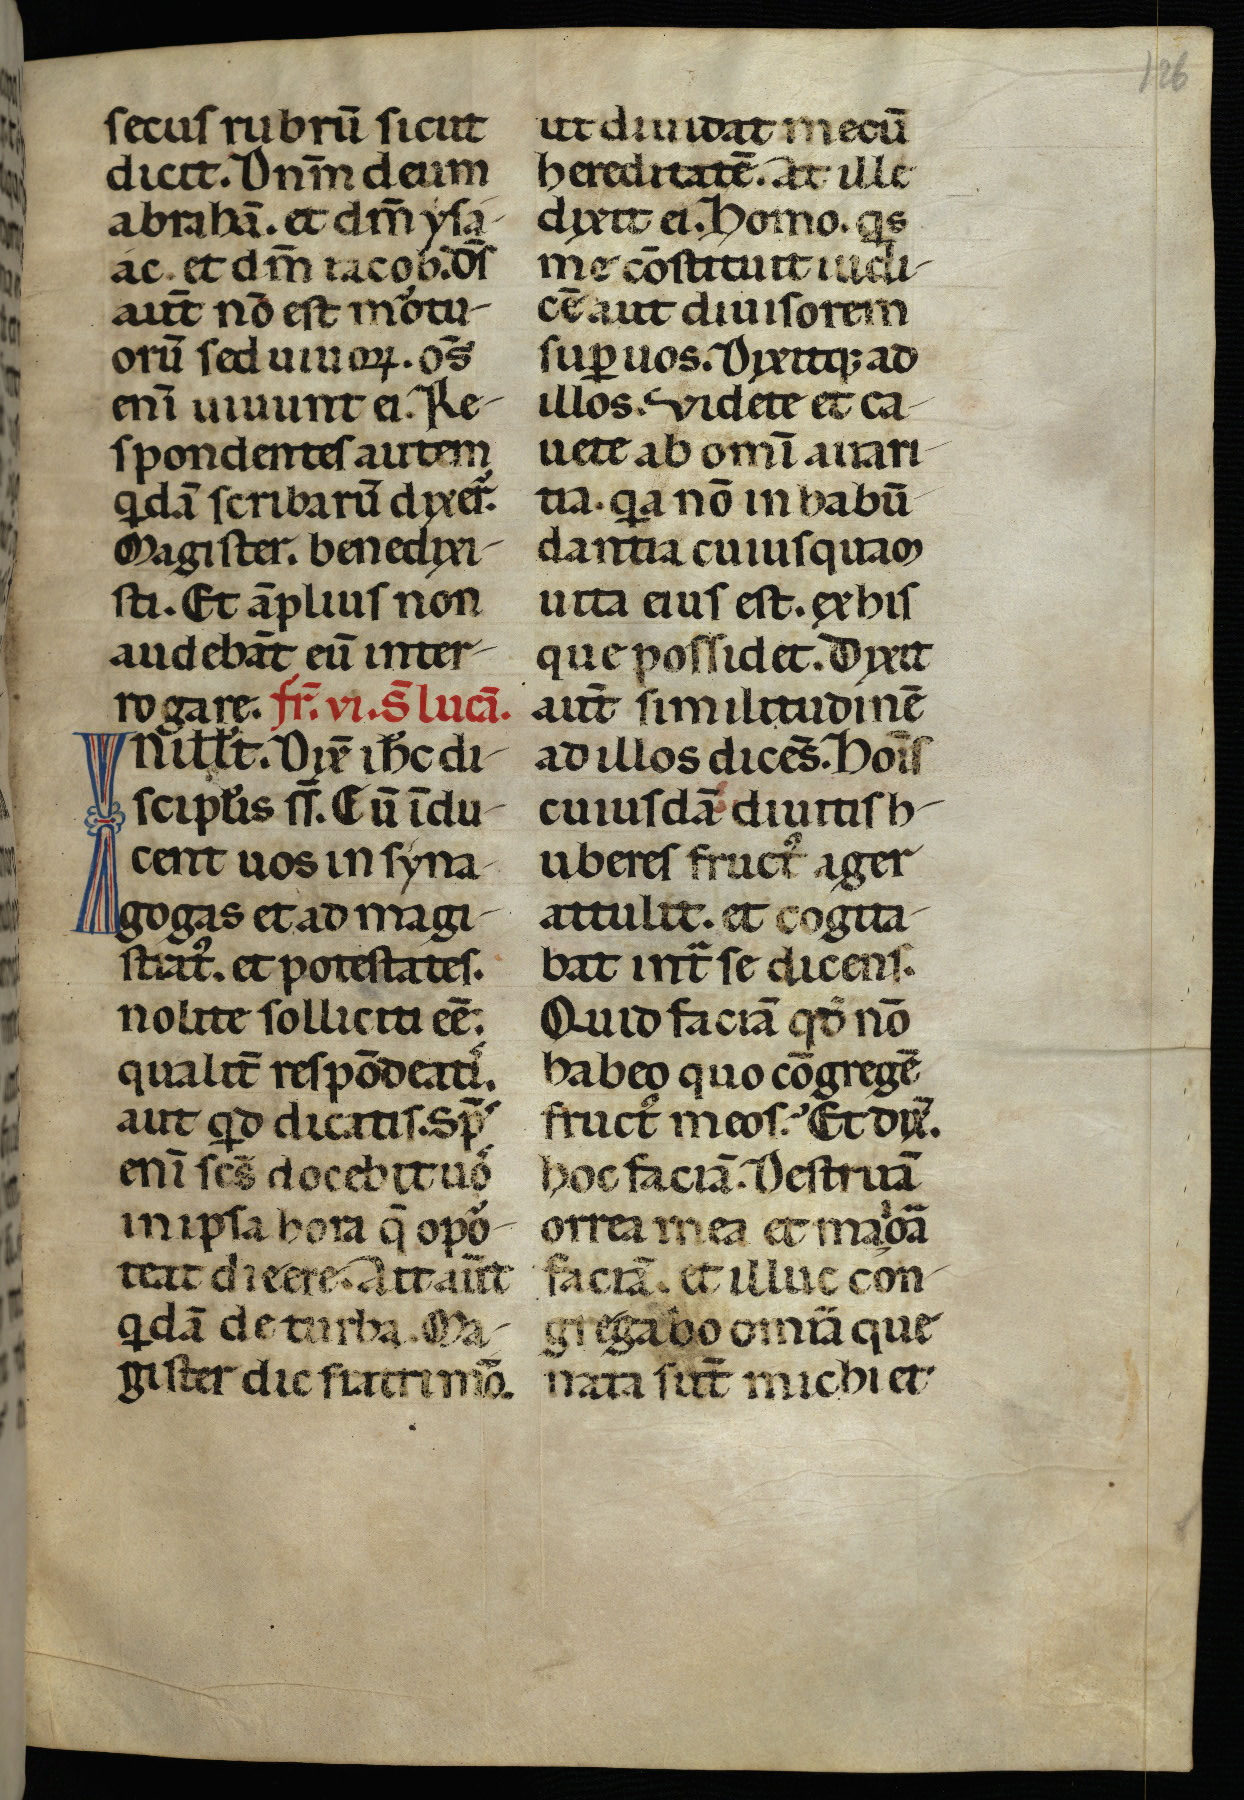 126
secus rubrū sicut
dicit. Dnm̄ deum
abrahā. et dm̄ ysa-
ac. et dm̄ iacob. Ds̄
aut̄ nō est mortu-
orū sed uiuoꝝ. os̄
enī uiuunt ei. Re-
spondentes autem
qdā scribarū dixer̄.
Magister. benedixi-
sti. Et āplius non
audebāt eū inter-
rogare. fr̄. vi. S̄ lucā.
In ill̄ t̄. Dix̄ ihc̄ di-
scipul̄is s̄s. Cū īdu-
cent uos in syna-
gogas et ad magi-
strat᷒. et potestates.
nolite solliciti eē.
qualit̄ respōdeatis.
aut qd dicatis. Sp̄s
enī scs̄ docebit uos
in ipsa hora q̄ opor-
teat dicere. Ait aut̄
qdā de turba. Ma-
gister dic fratri mō.
ut diuidat mecū
hereditatē. At ille
dixit ei. Homo. qs
me cōstituit iudi-
cē aut diuisorem
suꝑ uos. Dixitqꝫ ad
illos. Videte et ca-
uete ab omī auari-
tia. qa nō in habū-
dantia cuiusquam
uita eius est. ex his
que possidet. Dixit
aut̄ similitudinē
ad illos dicēs. Hoīs
cuiusdā diuitis h-
uberes fruct᷒ ager
attulit. et cogita-
bat int̄ se dicens.
Quid faciā qd̄ nō
habeo quo cōgregē
fruct᷒ meos. Et dix̄.
hoc faciā. Destruā
orrea mea et maiorā
faciā. et illuc con-
gregabo omīa que
nata sūt michi et